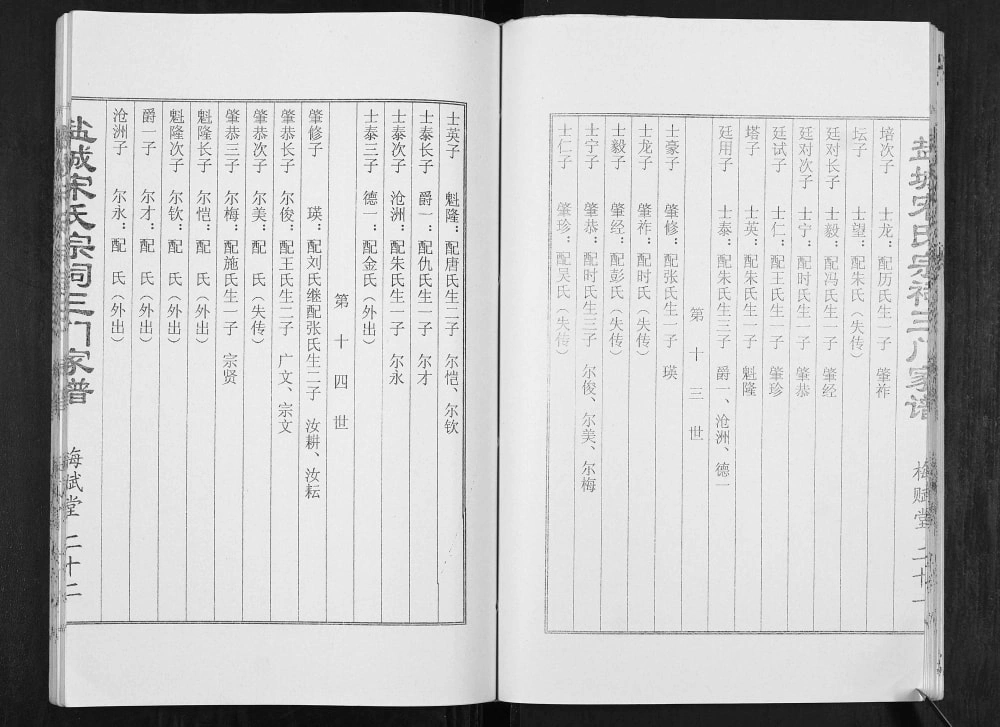 盐城宋氏宗祠三门家谱 梅赋堂 二十一
培次子 士龙：配历氏生一子 肇祚
坛子 士望：配朱氏（失传）
廷对长子 士毅：配冯氏生一子 肇经
廷对次子 士宁：配时氏生一子 肇恭
廷试子 士仁：配王氏生一子 肇珍
塔子 士英：配朱氏生一子 魁隆
廷用子 士泰：配朱氏生三子 爵一、沧洲、德一
第十三世
士豪子 肇修：配张氏生一子 瑛
士龙子 肇祚：配时氏（失传）
士毅子 肇经：配彭氏（失传）
士宁子 肇恭：配时氏生三子 尔俊、尔美、尔梅
士仁子 肇珍：配吴氏（失传）
士英子 魁隆：配唐氏生二子 尔恺、尔钦
士泰长子 爵一：配仇氏生一子 尔才
士泰次子 沧洲：配朱氏生一子 尔永
士泰三子 德一：配金氏（外出）
第十四世
肇修子 瑛：配刘氏继配张氏生二子 汝耕、汝耘
肇恭长子 尔俊：配王氏生二子 广文、宗文
肇恭次子 尔美：配 氏（失传）
肇恭三子 尔梅：配施氏生一子 宗贤
魁隆长子 尔恺：配 氏（外出）
魁隆次子 尔钦：配 氏（外出）
爵一子 尔才：配 氏（外出）
沧洲子 尔永：配 氏（外出）
盐城宋氏宗祠三门家谱 梅赋堂 二十二